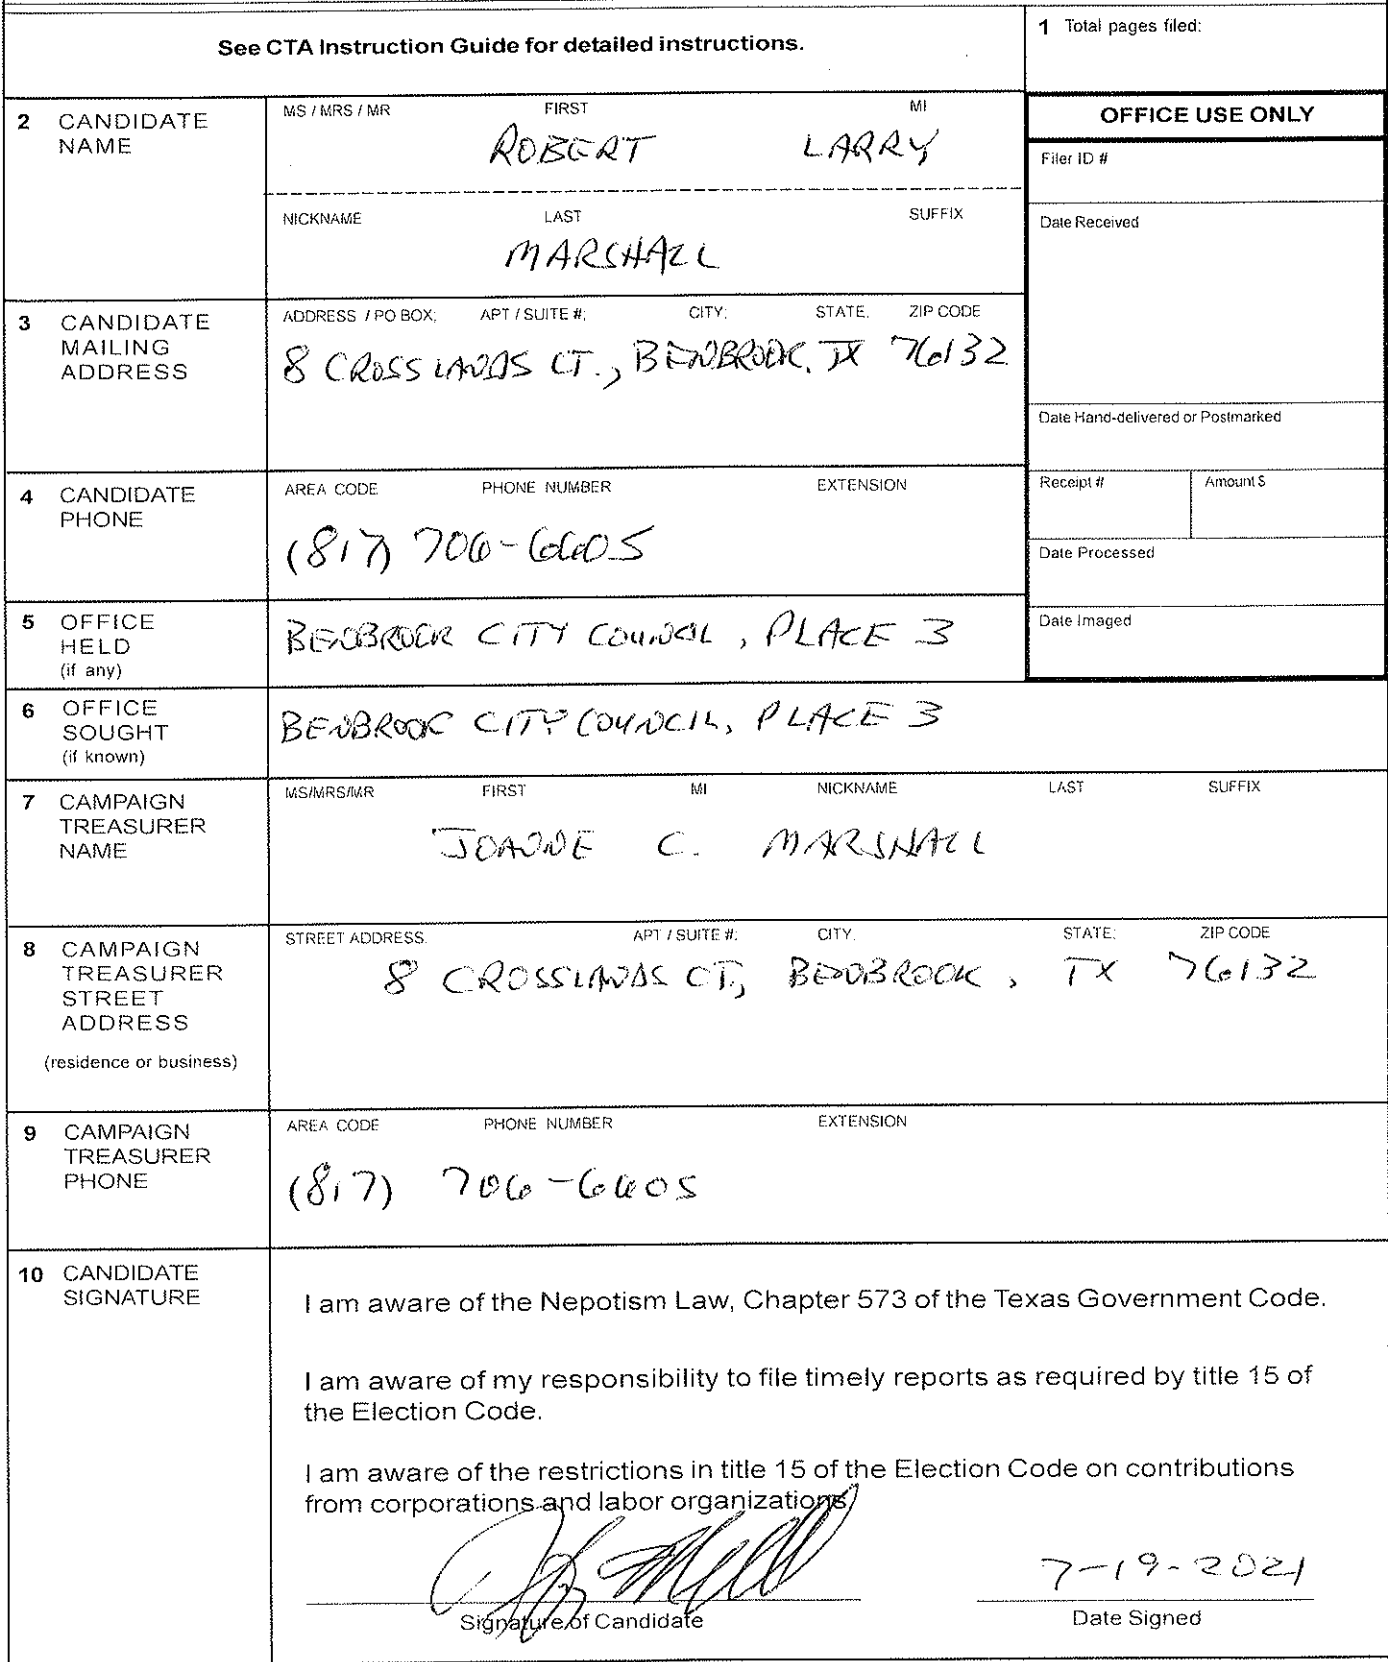 See CTA Instruction Guide for detailed instructions.
1 Total pages filed:
2 CANDIDATE NAME
MS / MRS / MR FIRST MI
ROBERT LARRY
NICKNAME LAST SUFFIX
MARSHALL
OFFICE USE ONLY
Filer ID #
Date Received
Date Hand-delivered or Postmarked
Receipt # Amount $
Date Processed
Date Imaged
3 CANDIDATE MAILING ADDRESS
ADDRESS / PO BOX; APT / SUITE #; CITY; STATE; ZIP CODE
8 CROSSLANDS CT., BENBROOK, TX 76132
4 CANDIDATE PHONE
AREA CODE PHONE NUMBER EXTENSION
(817) 706-6605
5 OFFICE HELD (if any)
BENBROOK CITY COUNCIL, PLACE 3
6 OFFICE SOUGHT (if known)
BENBROOK CITY COUNCIL, PLACE 3
7 CAMPAIGN TREASURER NAME
MS/MRS/MR FIRST MI NICKNAME LAST SUFFIX
JOANNE C. MARSHALL
8 CAMPAIGN TREASURER STREET ADDRESS
(residence or business)
STREET ADDRESS; APT / SUITE #; CITY; STATE; ZIP CODE
8 CROSSLANDS CT, BENBROOK, TX 76132
9 CAMPAIGN TREASURER PHONE
AREA CODE PHONE NUMBER EXTENSION
(817) 706-6605
10 CANDIDATE SIGNATURE
I am aware of the Nepotism Law, Chapter 573 of the Texas Government Code.
I am aware of my responsibility to file timely reports as required by title 15 of
the Election Code.
I am aware of the restrictions in title 15 of the Election Code on contributions
from corporations and labor organizations.
7-19-2021
Signature of Candidate Date Signed